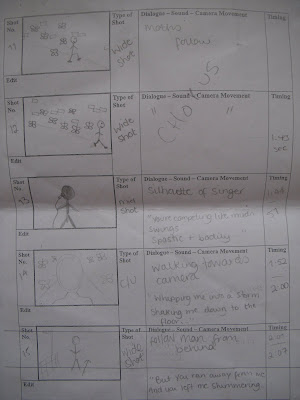 Shot No.
Type of Shot
Dialogue – Sound – Camera Movement
Timing
11
wide shot
moths follow
Edit
Shot No.
Type of Shot
Dialogue – Sound – Camera Movement
Timing
12
wide shot
" CHORUS "
Edit
Shot No.
Type of Shot
Dialogue – Sound – Camera Movement
Timing
13
shot
silhouette of singer
swings
Edit
Shot No.
Type of Shot
Dialogue – Sound – Camera Movement
Timing
14
C/U
walking towards camera
1.52
2.00
Whipping me into a storm
Shaking me down to the
floor"
Edit
Shot No.
Type of Shot
Dialogue – Sound – Camera Movement
Timing
15
wide shot
follow man from
behind
"But you ran away from me
and you left me shimmering
Edit